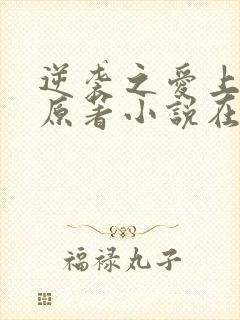 逆袭之愛上
原著小說在
福禄丸子